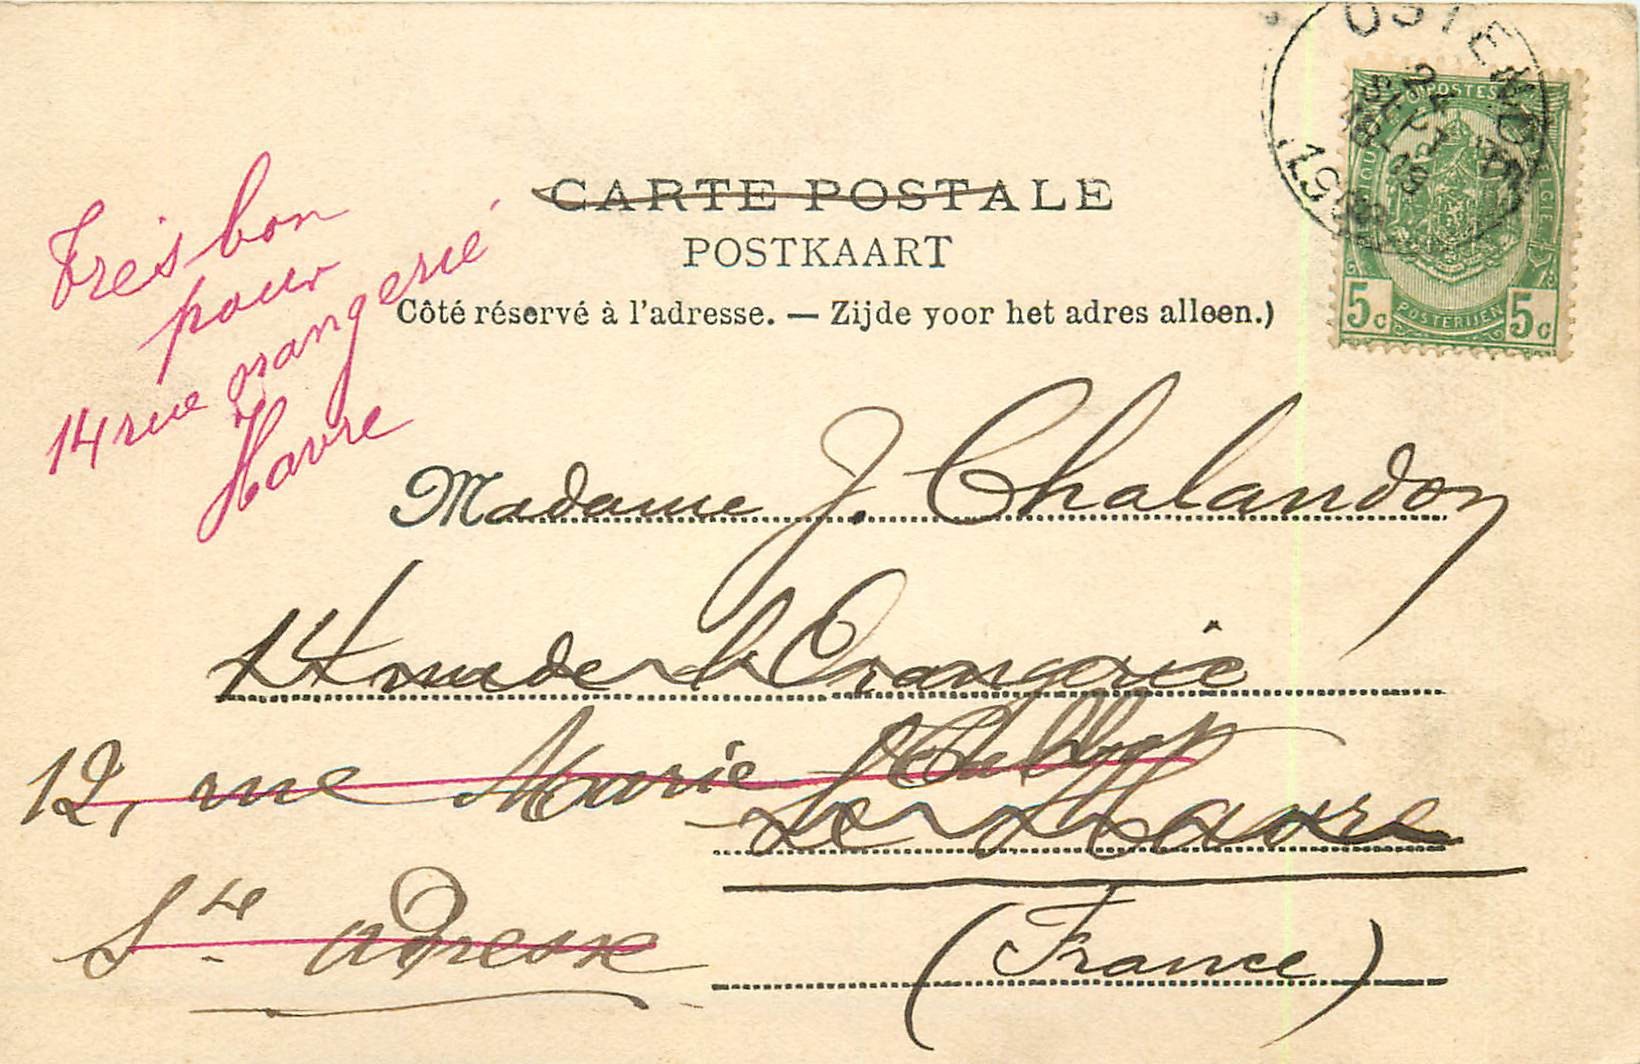 OSTENDE
1905
POSTES
POSTERIJEN
5c 5c
CARTE POSTALE
POSTKAART
Côté réservé à l'adresse. — Zijde voor het adres alleen.)
Très bon
pour
14 rue orangerié
Havre
Madame J. Chalandon
14 rue de l'Orangerie
12, rue Marie
Le Havre
Ste adresse
(France)